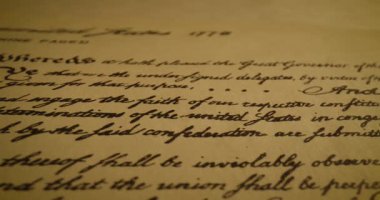 United States 1778
Whereas it hath pleased the Great Governor of the
Ye that we the undersigned delegates, by virtue of
given for that purpose, . . . . And
engage the faith of our respective constit
determinations of the united States in cong
by the said confederation are submitte
thereof shall be inviolably observe
and that the union shall be perpe